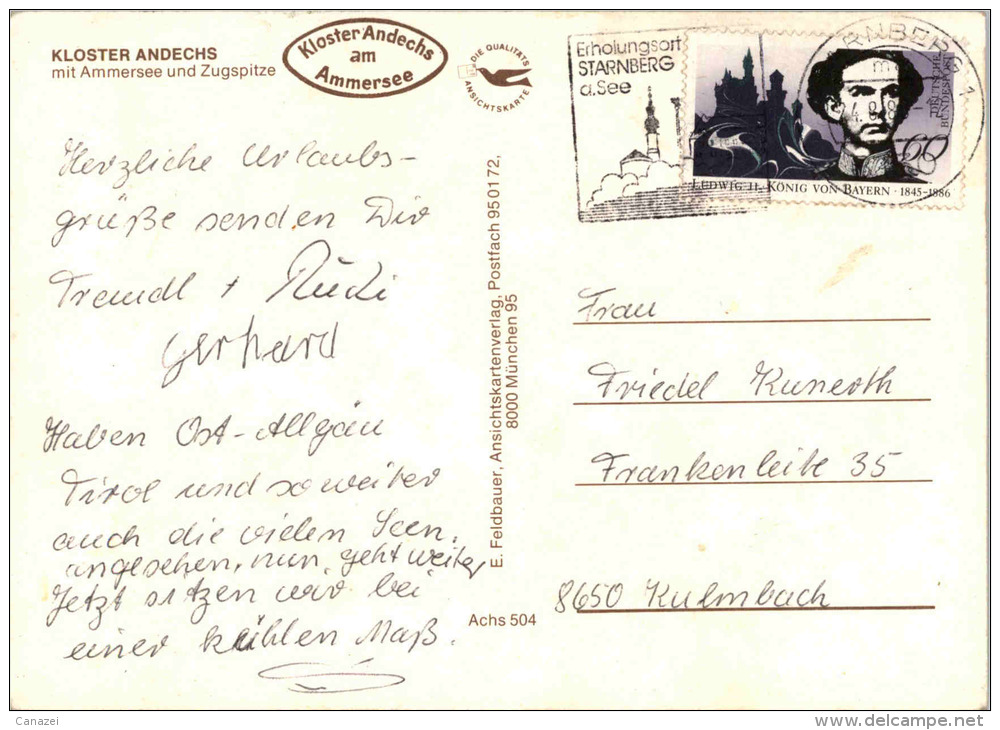 KLOSTER ANDECHS
mit Ammersee und Zugspitze
Kloster Andechs
am
Ammersee
DIE QUALITÄTS
ANSICHTSKARTE
Erholungsort
STARNBERG
a.See
RNBERG 1
DEUTSCHE
BUNDESPOST
60
LUDWIG II. KÖNIG VON BAYERN · 1845-1886
Herzliche Urlaubs-
grüße senden Dir
+ Rudi
Gerhard
Haben Ost-Allgäu
Tirol und so weiter
auch die vielen Seen.
angesehen, nun geht weiter
Jetzt sitzen wir bei
einer kühlen Maß.
E. Feldbauer, Ansichtskartenverlag, Postfach 950172,
8000 München 95
Achs 504
Frau
Friedel Kuneoth
Frankenleite 35
8650 Kulmbach
Canazei
www.delcampe.net